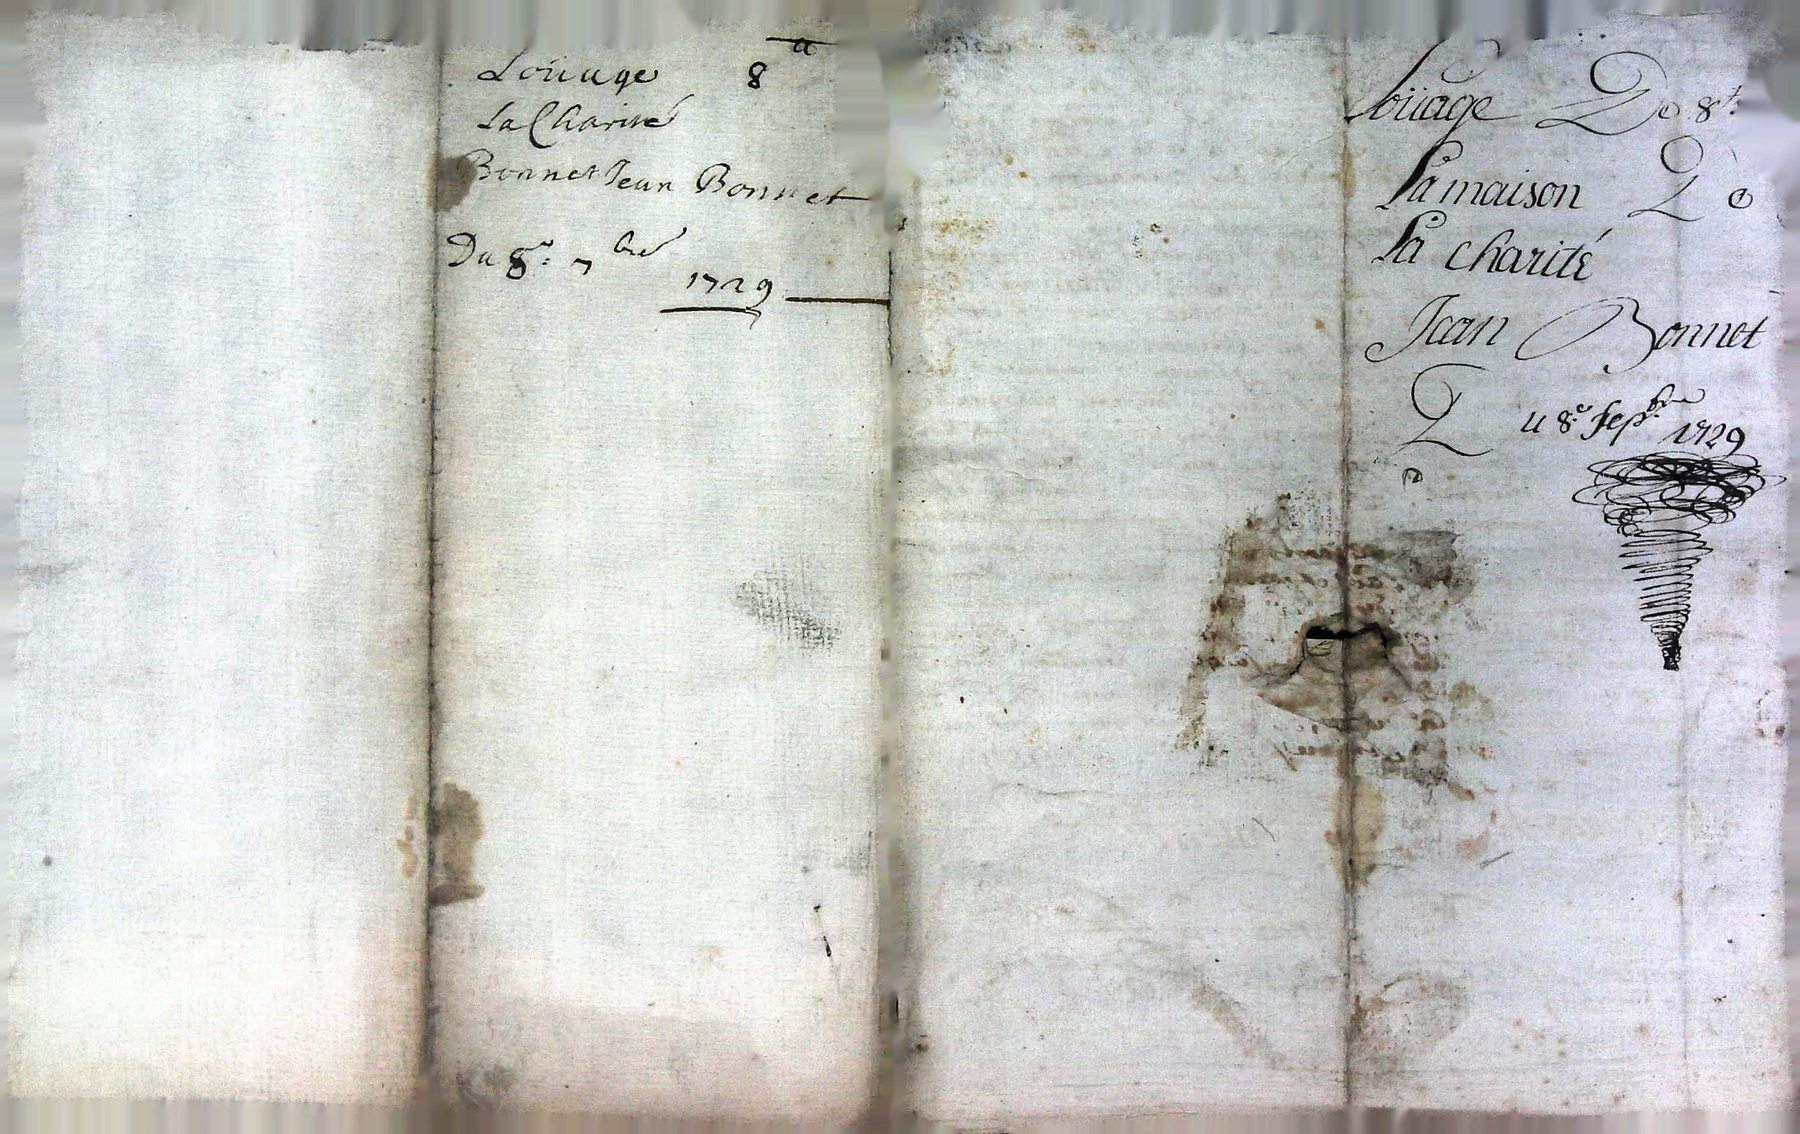 Loüage 8 a
La Charité
Bonnet Jean Bonnet
Du 8e. 7bre
1729
Loüage De 8t.
La maison De
La charité
Jean Bonnet
Du 8e Sepbre 1729